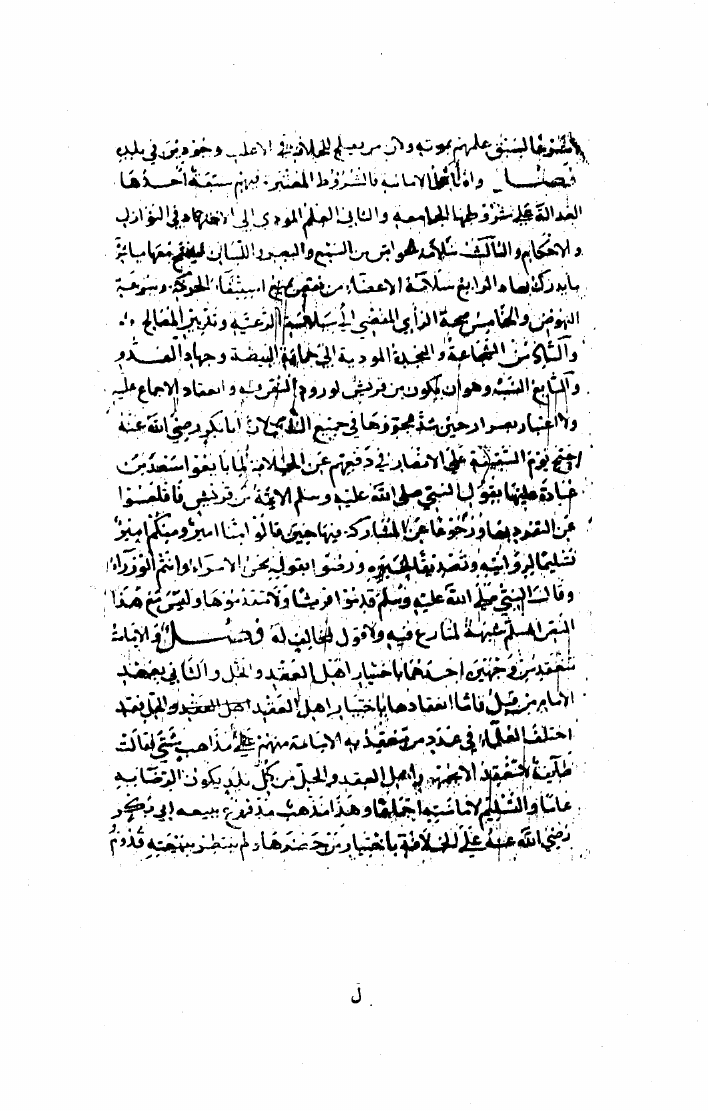 لسبق علمهم بموته ولان من يصلح للخلافة في الاغلب موجودون في بلده
فصل واما اهل الامامة فالشروط المعتبرة فيهم سبعة احدها
العدالة على شروطها الجامعة والثاني العلم المودي الى الاجتهاد في النوازل
والاحكام والثالث سلامة الحواس من السمع والبصر واللسان ليصح معها مباشرة
ما يدرك بها والرابع سلامة الاعضاء من نقص يمنع استيفاء الحركة وسرعة
النهوض والخامس صحة الراي المفضي الى سياسة الرعية وتدبير المصالح
والسادس الشجاعة والنجدة المودية الى حماية البيضة وجهاد العدو
والسابع النسب وهو ان يكون من قريش لورود النص فيه وانعقاد الاجماع عليه
ولا اعتبار بضرار حين شذ فجوزها في جميع الناس لان ابا بكر رضي الله عنه
احتج يوم السقيفة على الانصار في دفعهم عن الخلافة لما بايعوا سعد بن
عبادة عليها بقول النبي صلى الله عليه وسلم الائمة من قريش فاقلعوا
عن التفرد بها ورجعوا عن المشاركة فيها حين قالوا منا امير ومنكم امير
تسليما لروايته وتصديقا لخبره ورضوا بقوله نحن الامراء وانتم الوزراء
وقال النبي صلى الله عليه وسلم قدموا قريشا ولا تتقدموها وليس مع هذا
النص المسلم شبهة لمنازع فيه ولا قول لمخالف له فصل والامامة
تنعقد من وجهين احدهما باختيار اهل العقد والحل والثاني بعهد
الامام من قبل فاما انعقادها باختيار اهل العقد والحل فقد
اختلف العلماء في عدد من تنعقد به الامامة منهم على مذاهب شتى فقالت
طائفة لا تنعقد الا بجمهور اهل العقد والحل من كل بلد ليكون الرضا به
عاما والتسليم لامامته اجماعا وهذا مذهب مدفوع ببيعة ابي بكر
رضي الله عنه على الخلافة باختيار من حضرها ولم ينتظر ببيعته قدوم
ل